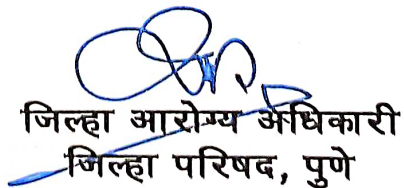 जिल्हा आरोग्य अधिकारी
जिल्हा परिषद, पुणे